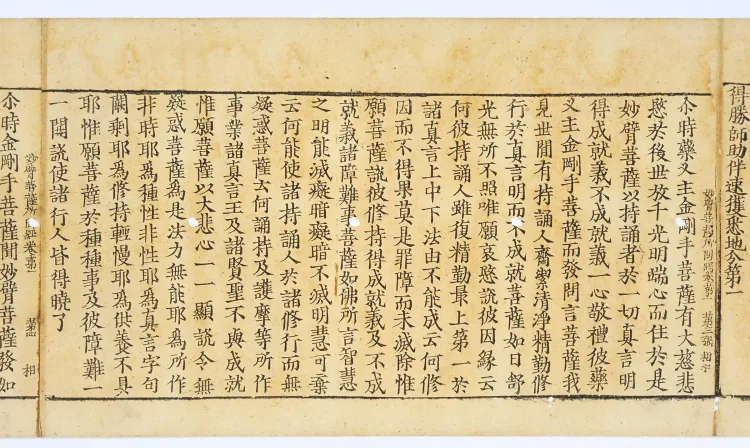 得勝師助伴速獲悉地分第一
妙臂菩薩所問經卷第一 相字
尒時藥叉主金剛手菩薩有大慈悲
愍於後世放千光明端心而住於是
妙臂菩薩以持誦者於一切真言明
得成就義不成就義一心敬禮彼藥
叉主金剛手菩薩而發問言菩薩我
見世閒有持誦人齋潔清淨精勤修
行於真言明而不成就菩薩如日舒
光無所不照唯願哀愍說彼因緣云
何彼持誦人雖復精勤最上第一於
諸真言上中下法由不能成云何修
因而不得果莫是罪障而未滅除惟
願菩薩說彼修持得成就義及不成
就義諸障難事菩薩如佛所言智慧
之明能滅癡暗癡暗不滅明慧可棄
云何能使諸持誦人於諸修行而無
疑惑菩薩云何誦持及護摩等所作
事業諸真言王及諸賢聖不與成就
惟願菩薩以大悲心一一顯說令無
疑惑菩薩為是法力無能耶為所作
非時耶為種性非性耶為真言字句
闕剩耶為修持輕慢耶為供養不具
耶惟願菩薩於種種事及彼障難一
一開說使諸行人皆得曉了
妙臂菩薩所問經卷第一 相
尒時金剛手菩薩聞妙臂菩薩發如